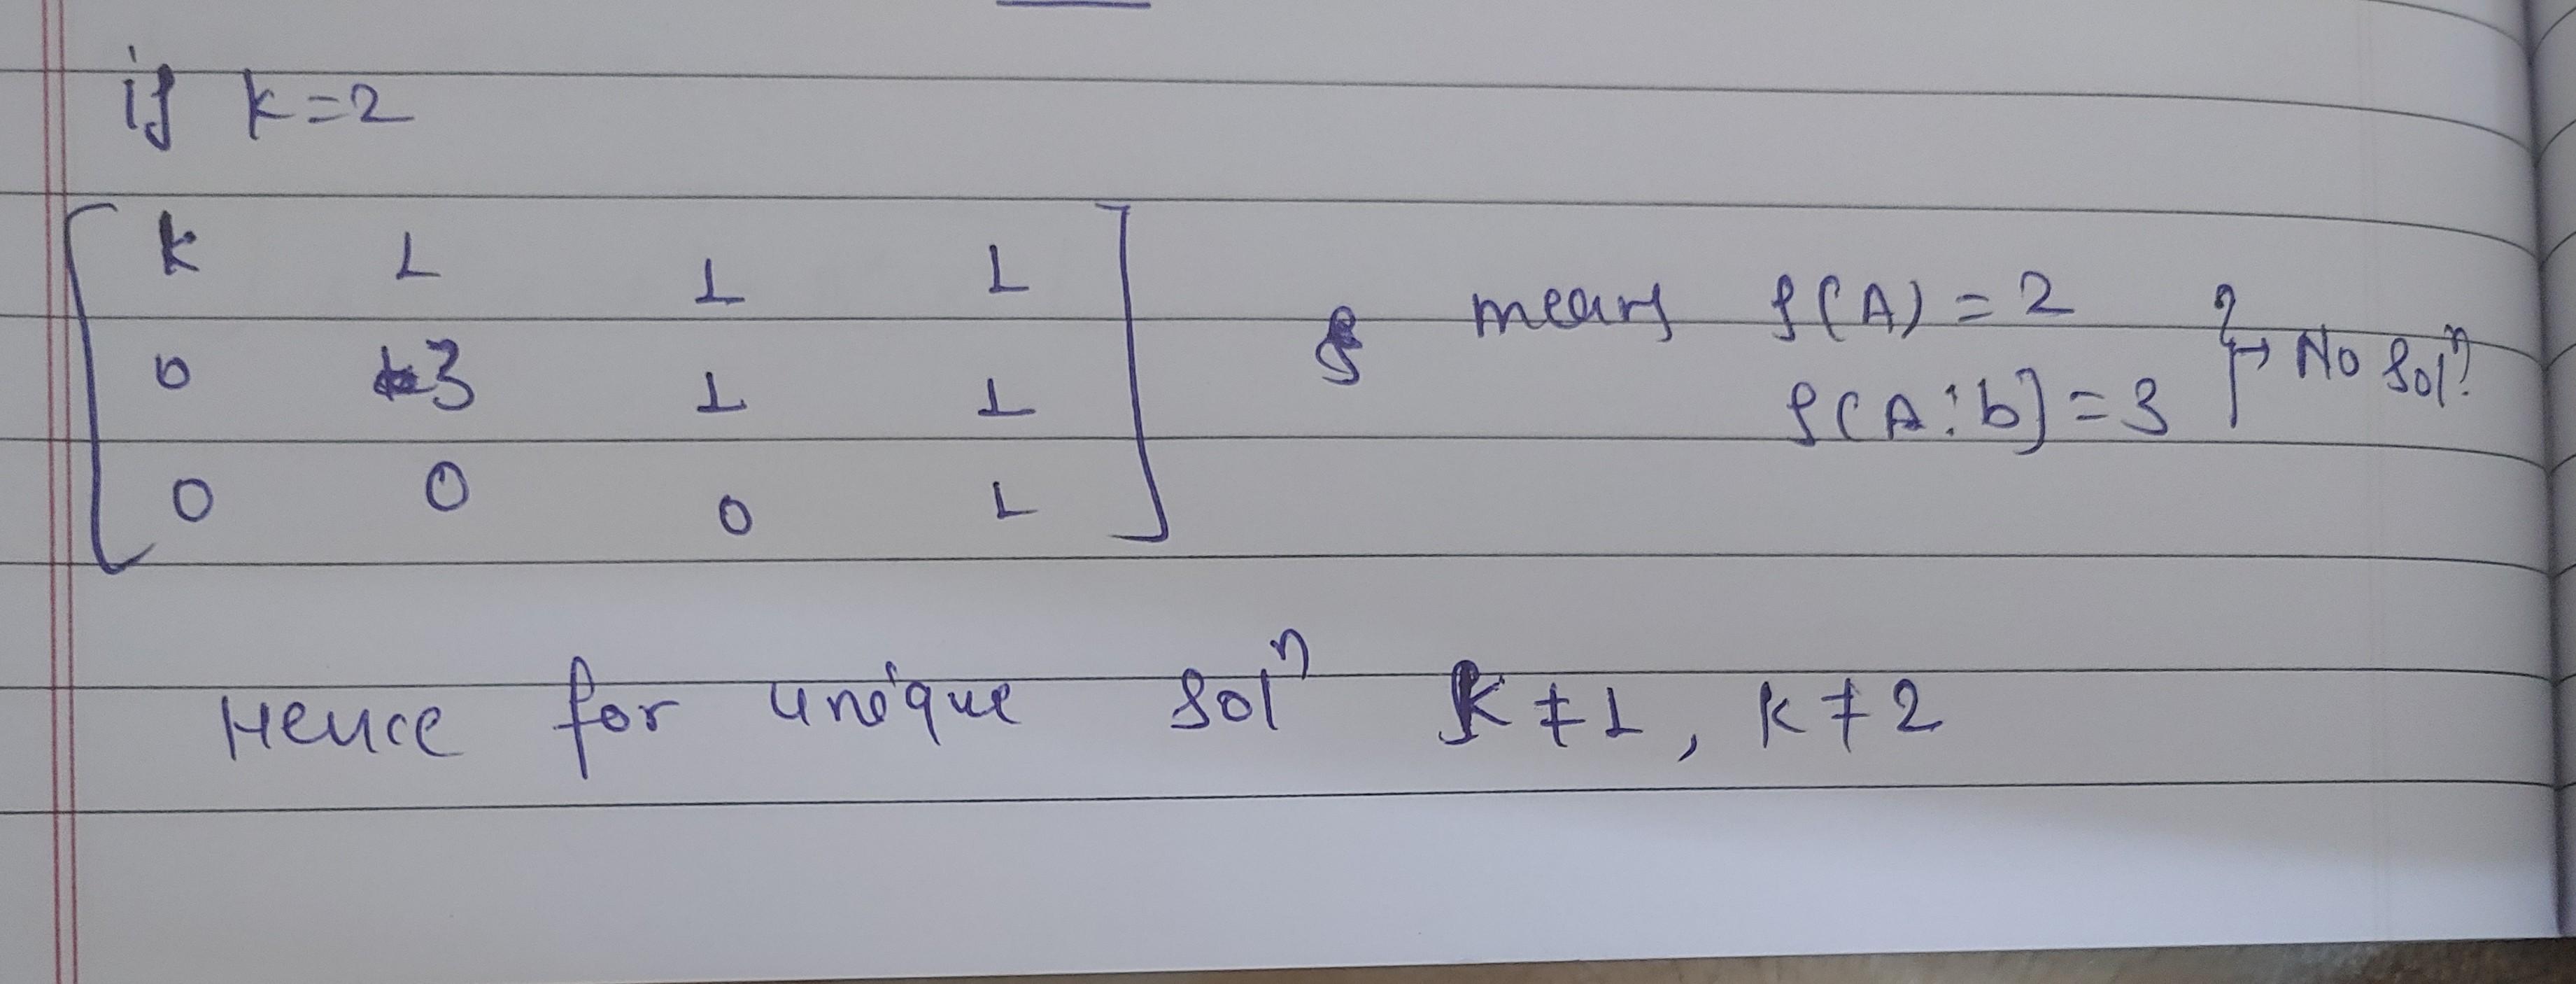 if k=2
[ k 1 1 1 ]
[ 0 3 1 1 ] means ρ(A) = 2
[ 0 0 0 1 ] ρ(A:b] = 3 } → No Solⁿ.
Hence for unique Solⁿ K ≠ 1, K ≠ 2